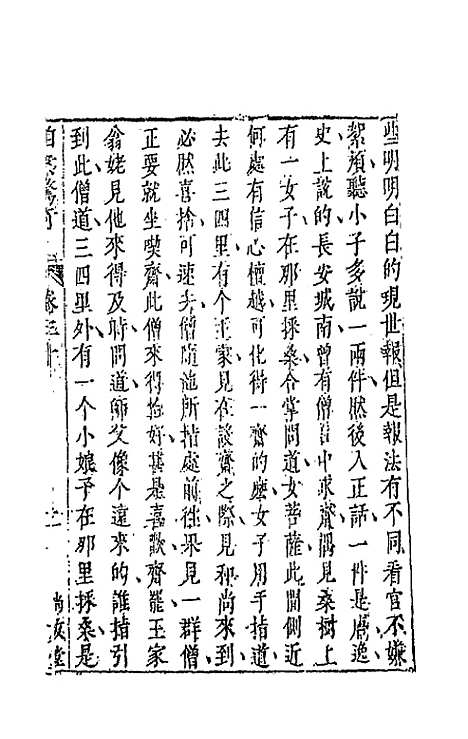 些明明白白的現世報但是報法有不同看官不嫌
絮煩聽小子多說一兩件然後入正話一件是唐逸
史上說的長安城南曾有僧日中求齋偶見桑樹上
有一女子在那里採桑合掌問道女菩薩此間側近
何處有信心檀越可化得一齋的麼女子用手指道
去此三四里有个王家見在設齋之際見和尚來到
必然喜捨可速去僧隨他所指處前徃果見一群僧
正要就坐喫齋此僧來得恰好甚是喜歡齋罷王家
翁姥見他來得及時問道師父像个遠來的誰指引
到此僧道三四里外有一个小娘子在那里採桑是
拍案驚奇 卷三十 二 尚友堂